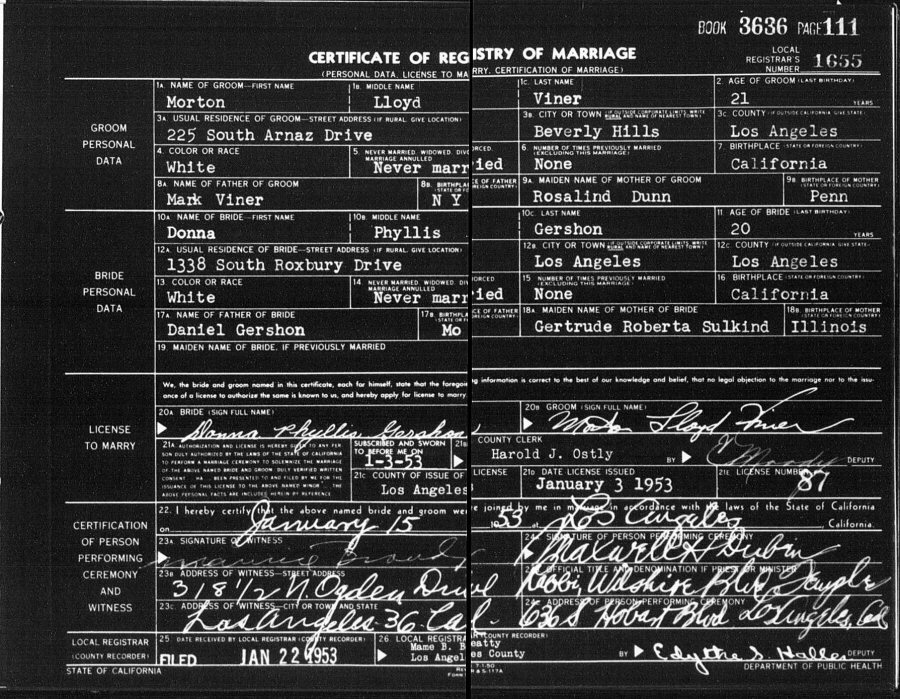 BOOK 3636 PAGE 111
CERTIFICATE OF REGISTRY OF MARRIAGE
(PERSONAL DATA, LICENSE TO MARRY, CERTIFICATION OF MARRIAGE)
LOCAL REGISTRAR'S NUMBER 1655
GROOM PERSONAL DATA
1A. NAME OF GROOM—FIRST NAME 1B. MIDDLE NAME 1C. LAST NAME 2. AGE OF GROOM (LAST BIRTHDAY)
Morton Lloyd Viner 21 YEARS
3A. USUAL RESIDENCE OF GROOM—STREET ADDRESS (IF RURAL, GIVE LOCATION) 3B. CITY OR TOWN (IF OUTSIDE CORPORATE LIMITS, WRITE RURAL AND NAME OF NEAREST TOWN) 3C. COUNTY (IF OUTSIDE CALIFORNIA, GIVE STATE)
225 South Arnaz Drive Beverly Hills Los Angeles
4. COLOR OR RACE 5. NEVER MARRIED, WIDOWED, DIVORCED, MARRIAGE ANNULLED 6. NUMBER OF TIMES PREVIOUSLY MARRIED (EXCLUDING THIS MARRIAGE) 7. BIRTHPLACE (STATE OR FOREIGN COUNTRY)
White Never married None California
8A. NAME OF FATHER OF GROOM 8B. BIRTHPLACE OF FATHER (STATE OR FOREIGN COUNTRY) 9A. MAIDEN NAME OF MOTHER OF GROOM 9B. BIRTHPLACE OF MOTHER (STATE OR FOREIGN COUNTRY)
Mark Viner N Y Rosalind Dunn Penn
BRIDE PERSONAL DATA
10A. NAME OF BRIDE—FIRST NAME 10B. MIDDLE NAME 10C. LAST NAME 11. AGE OF BRIDE (LAST BIRTHDAY)
Donna Phyllis Gershon 20 YEARS
12A. USUAL RESIDENCE OF BRIDE—STREET ADDRESS (IF RURAL, GIVE LOCATION) 12B. CITY OR TOWN (IF OUTSIDE CORPORATE LIMITS, WRITE RURAL AND NAME OF NEAREST TOWN) 12C. COUNTY (IF OUTSIDE CALIFORNIA, GIVE STATE)
1338 South Roxbury Drive Los Angeles Los Angeles
13. COLOR OR RACE 14. NEVER MARRIED, WIDOWED, DIVORCED, MARRIAGE ANNULLED 15. NUMBER OF TIMES PREVIOUSLY MARRIED (EXCLUDING THIS MARRIAGE) 16. BIRTHPLACE (STATE OR FOREIGN COUNTRY)
White Never married None California
17A. NAME OF FATHER OF BRIDE 17B. BIRTHPLACE OF FATHER (STATE OR FOREIGN COUNTRY) 18A. MAIDEN NAME OF MOTHER OF BRIDE 18B. BIRTHPLACE OF MOTHER (STATE OR FOREIGN COUNTRY)
Daniel Gershon Mo Gertrude Roberta Sulkind Illinois
19. MAIDEN NAME OF BRIDE, IF PREVIOUSLY MARRIED
LICENSE TO MARRY
We, the bride and groom named in this certificate, each for himself, state that the foregoing information is correct to the best of our knowledge and belief, that no legal objection to the marriage nor to the issu-
ance of a license to authorize the same is known to us, and hereby apply for license to marry
20A. BRIDE (SIGN FULL NAME) 20B. GROOM (SIGN FULL NAME)
Donna Phyllis Gershon Morton Lloyd Viner
21A. AUTHORIZATION AND LICENSE IS HEREBY GIVEN TO ANY PER
SON DULY AUTHORIZED BY THE LAWS OF THE STATE OF CALIFORNIA
TO PERFORM A MARRIAGE CEREMONY TO SOLEMNIZE THE MARRIAGE
OF THE ABOVE NAMED BRIDE AND GROOM. DULY VERIFIED WRITTEN
CONSENT HA BEEN PRESENTED TO AND FILED BY ME FOR THE
ISSUANCE OF THIS LICENSE TO THE ABOVE NAMED MINOR
ABOVE PERSONAL FACTS ARE INCLUDED HEREIN BY REFERENCE
SUBSCRIBED AND SWORN TO BEFORE ME ON 1-3-53
21B COUNTY CLERK
Harold J. Ostly BY DEPUTY
21C. COUNTY OF ISSUE OF LICENSE 21D. DATE LICENSE ISSUED 21E. LICENSE NUMBER
Los Angeles January 3 1953 87
CERTIFICATION OF PERSON PERFORMING CEREMONY AND WITNESS
22. I hereby certify that the above named bride and groom were joined by me in marriage in accordance with the laws of the State of California
on January 15 1953 at Los Angeles, California.
23A. SIGNATURE OF WITNESS 24A. SIGNATURE OF PERSON PERFORMING CEREMONY
Maxwell H Dubin
23B. ADDRESS OF WITNESS—STREET ADDRESS 24B. OFFICIAL TITLE AND DENOMINATION IF PRIEST OR MINISTER
318 1/2 N. Ogden Drive Rabbi, Wilshire Blvd Temple
23C. ADDRESS OF WITNESS—CITY OR TOWN AND STATE 24C. ADDRESS OF PERSON PERFORMING CEREMONY
Los Angeles 36. Cal. 636 S Hobart Blvd Los Angeles, Cal
LOCAL REGISTRAR (COUNTY RECORDER)
25. DATE RECEIVED BY LOCAL REGISTRAR (COUNTY RECORDER) 26. LOCAL REGISTRAR (COUNTY RECORDER)
FILED JAN 22 1953 Mame B. Beatty
Los Angeles County BY Edythe S. Halles DEPUTY
STATE OF CALIFORNIA DEPARTMENT OF PUBLIC HEALTH